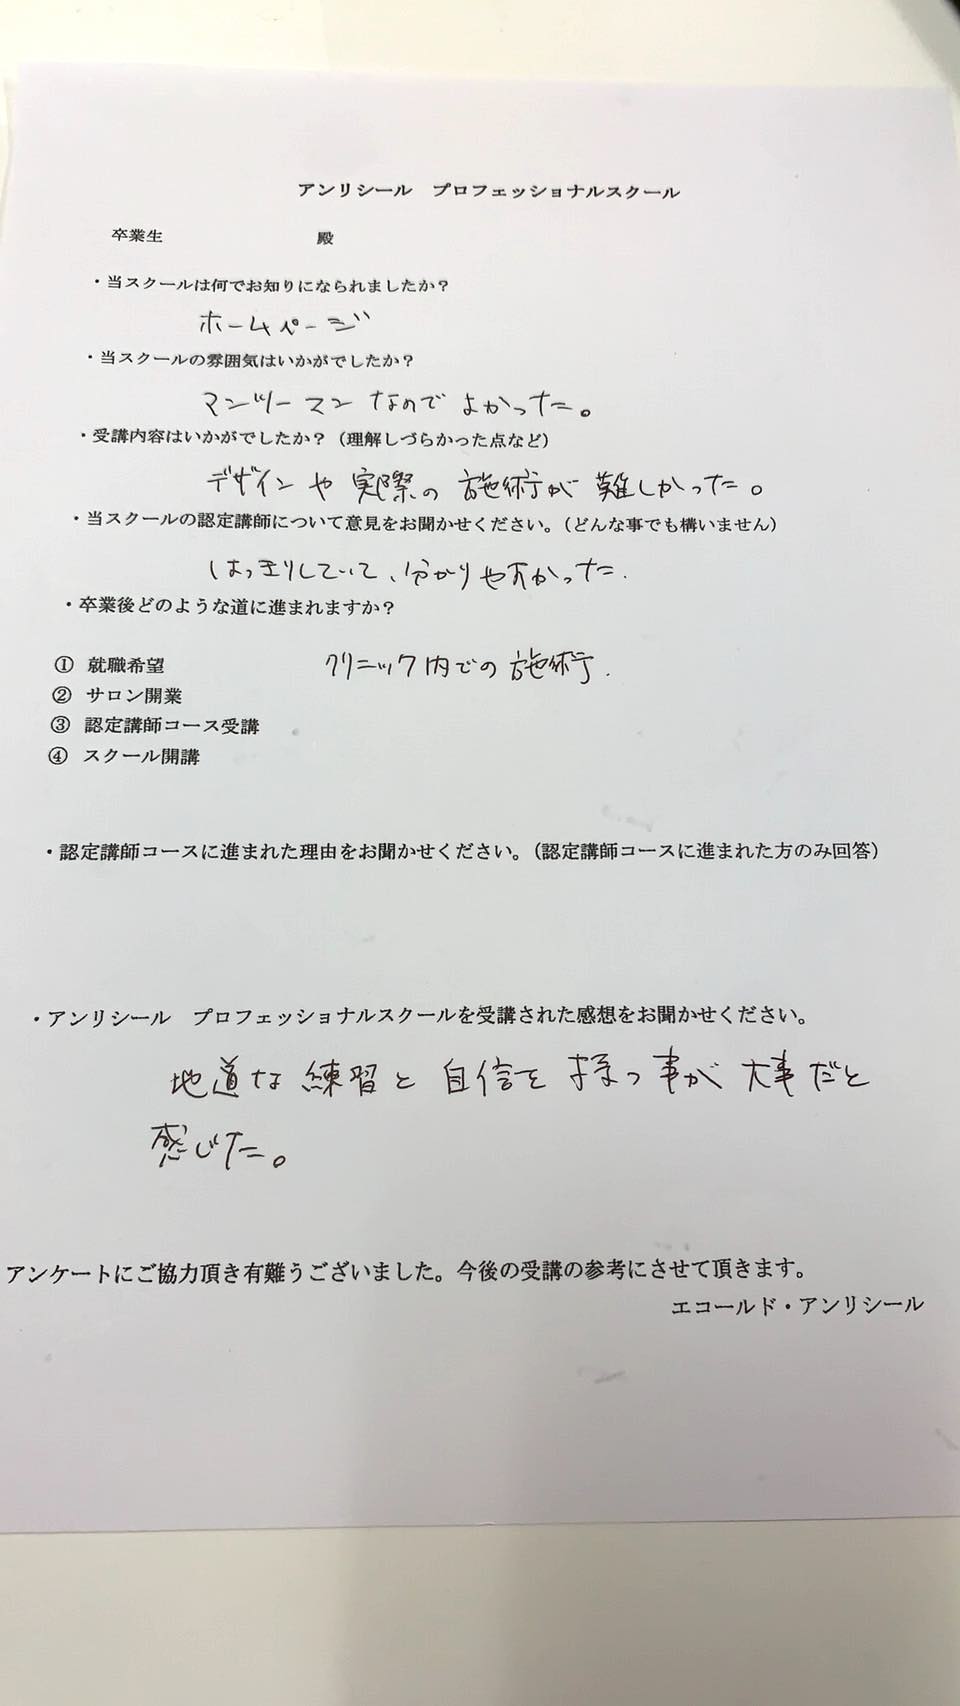 アンリシール　プロフェッショナルスクール
卒業生　殿
・当スクールは何でお知りになられましたか？
ホームページ
・当スクールの雰囲気はいかがでしたか？
マンツーマンなのでよかった。
・受講内容はいかがでしたか？（理解しづらかった点など）
デザインや実際の施術が難しかった。
・当スクールの認定講師について意見をお聞かせください。（どんな事でも構いません）
はっきりしていて、分かりやすかった.
・卒業後どのような道に進まれますか？
① 就職希望　クリニック内での施術.
② サロン開業
③ 認定講師コース受講
④ スクール開講
・認定講師コースに進まれた理由をお聞かせください。（認定講師コースに進まれた方のみ回答）
・アンリシール　プロフェッショナルスクールを受講された感想をお聞かせください。
地道な練習と自信を持つ事が大事だと
感じた。
アンケートにご協力頂き有難うございました。今後の受講の参考にさせて頂きます。
エコールド・アンリシール